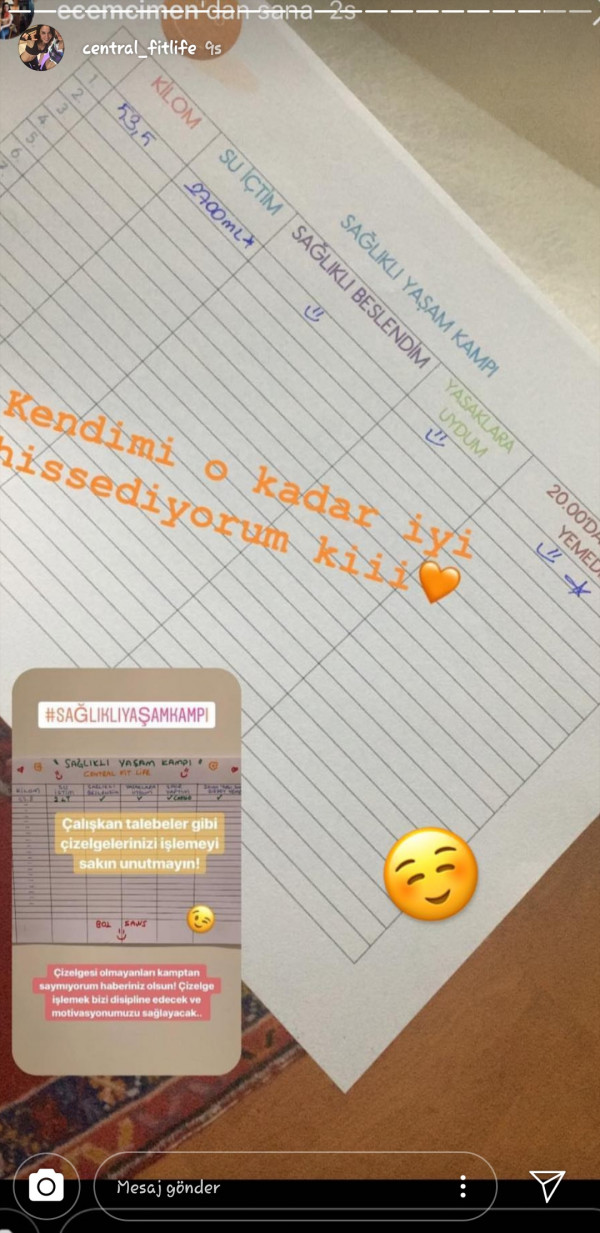 ecemcimen'dan sana 2s
central_fitlife 9s
SAĞLIKLI YAŞAM KAMPI
KİLOM
SU İÇTİM
SAĞLIKLI BESLENDİM
YASAKLARA
UYDUM
20.00'DA
YEMED
1
2
3
4
5
6
7
53,5
2700mL+
Kendimi o kadar iyi
hissediyorum kiii
#SAĞLIKLIYAŞAMKAMPI
SAĞLIKLI YAŞAM KAMPI
CENTRAL FIT LIFE
KİLOM
SU
İÇTİM
SAĞLIKLI
BESLENDİM
YASAKLARA
UYDUM
Çalışkan talebeler gibi
çizelgelerinizi işlemeyi
sakın unutmayın!
BOL ŞANS
Çizelgesi olmayanları kamptan
saymıyorum haberiniz olsun! Çizelge
işlemek bizi disipline edecek ve
motivasyonumuzu sağlayacak..
Mesaj gönder